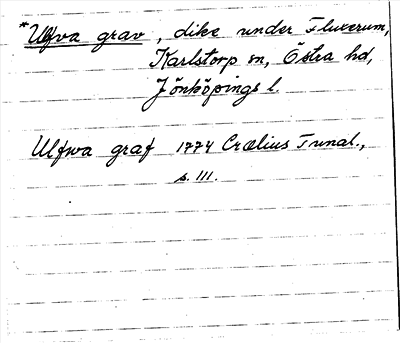 *Ulfva grav, dike under Fluxerum,
Karlstorp sn, Östra hd,
Jönköpings l.
Ulfwa graf 1774 Crælius Tunal.,
s. 111.